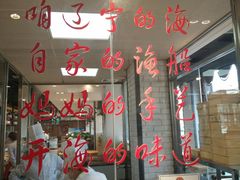 咱辽宁的海
自家的渔船
妈妈的手艺
开海的味道